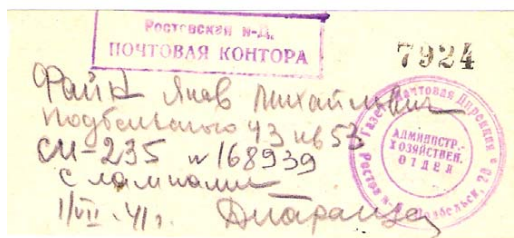 Ростовская н-Д.
ПОЧТОВАЯ КОНТОРА
7924
Файн Яков Михайлович
Подбельского 43 кв 53
СИ-235 № 168939
с лампами
1/VII-41 г.
Газетно-Почтовая Дирекция
АДМИНИСТР.-
ХОЗЯЙСТВЕН.
ОТДЕЛ
Ростов н-Д.